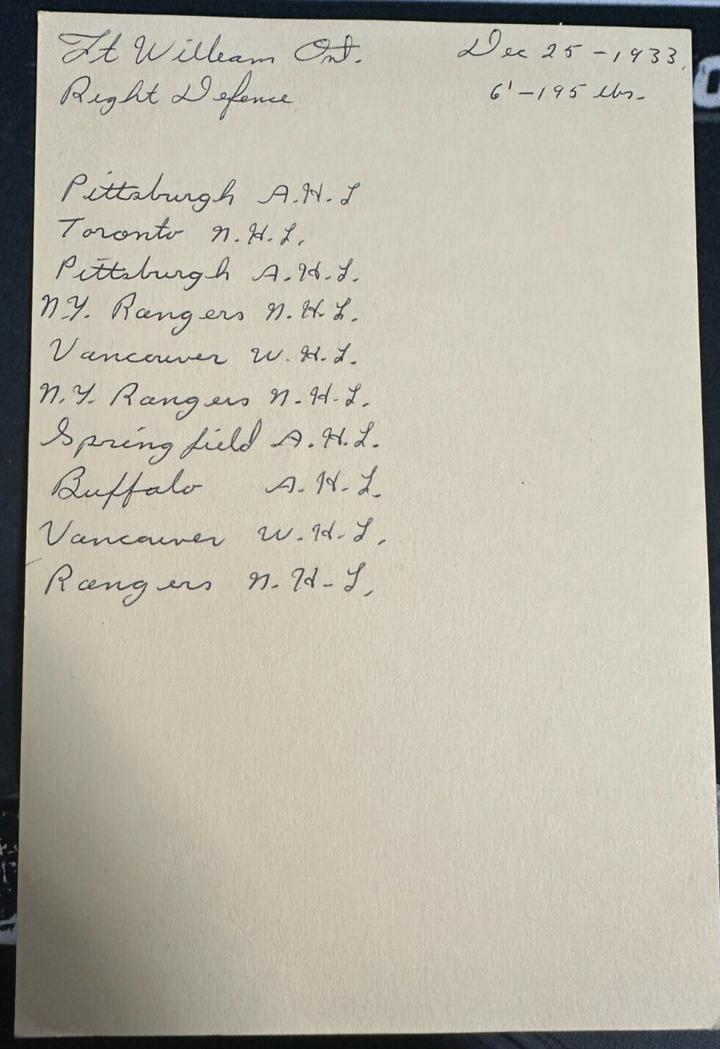 Ft William Ont. Dec 25-1933.
Right Defence 6'-195 lbs-
Pittsburgh A.H.L
Toronto N.H.L.
Pittsburgh A.H.L.
N.Y. Rangers N.H.L.
Vancouver W.H.L.
N.Y. Rangers N.H.L.
Springfield A.H.L.
Buffalo A.H.L.
Vancouver W.H.L.
Rangers N.H-L.